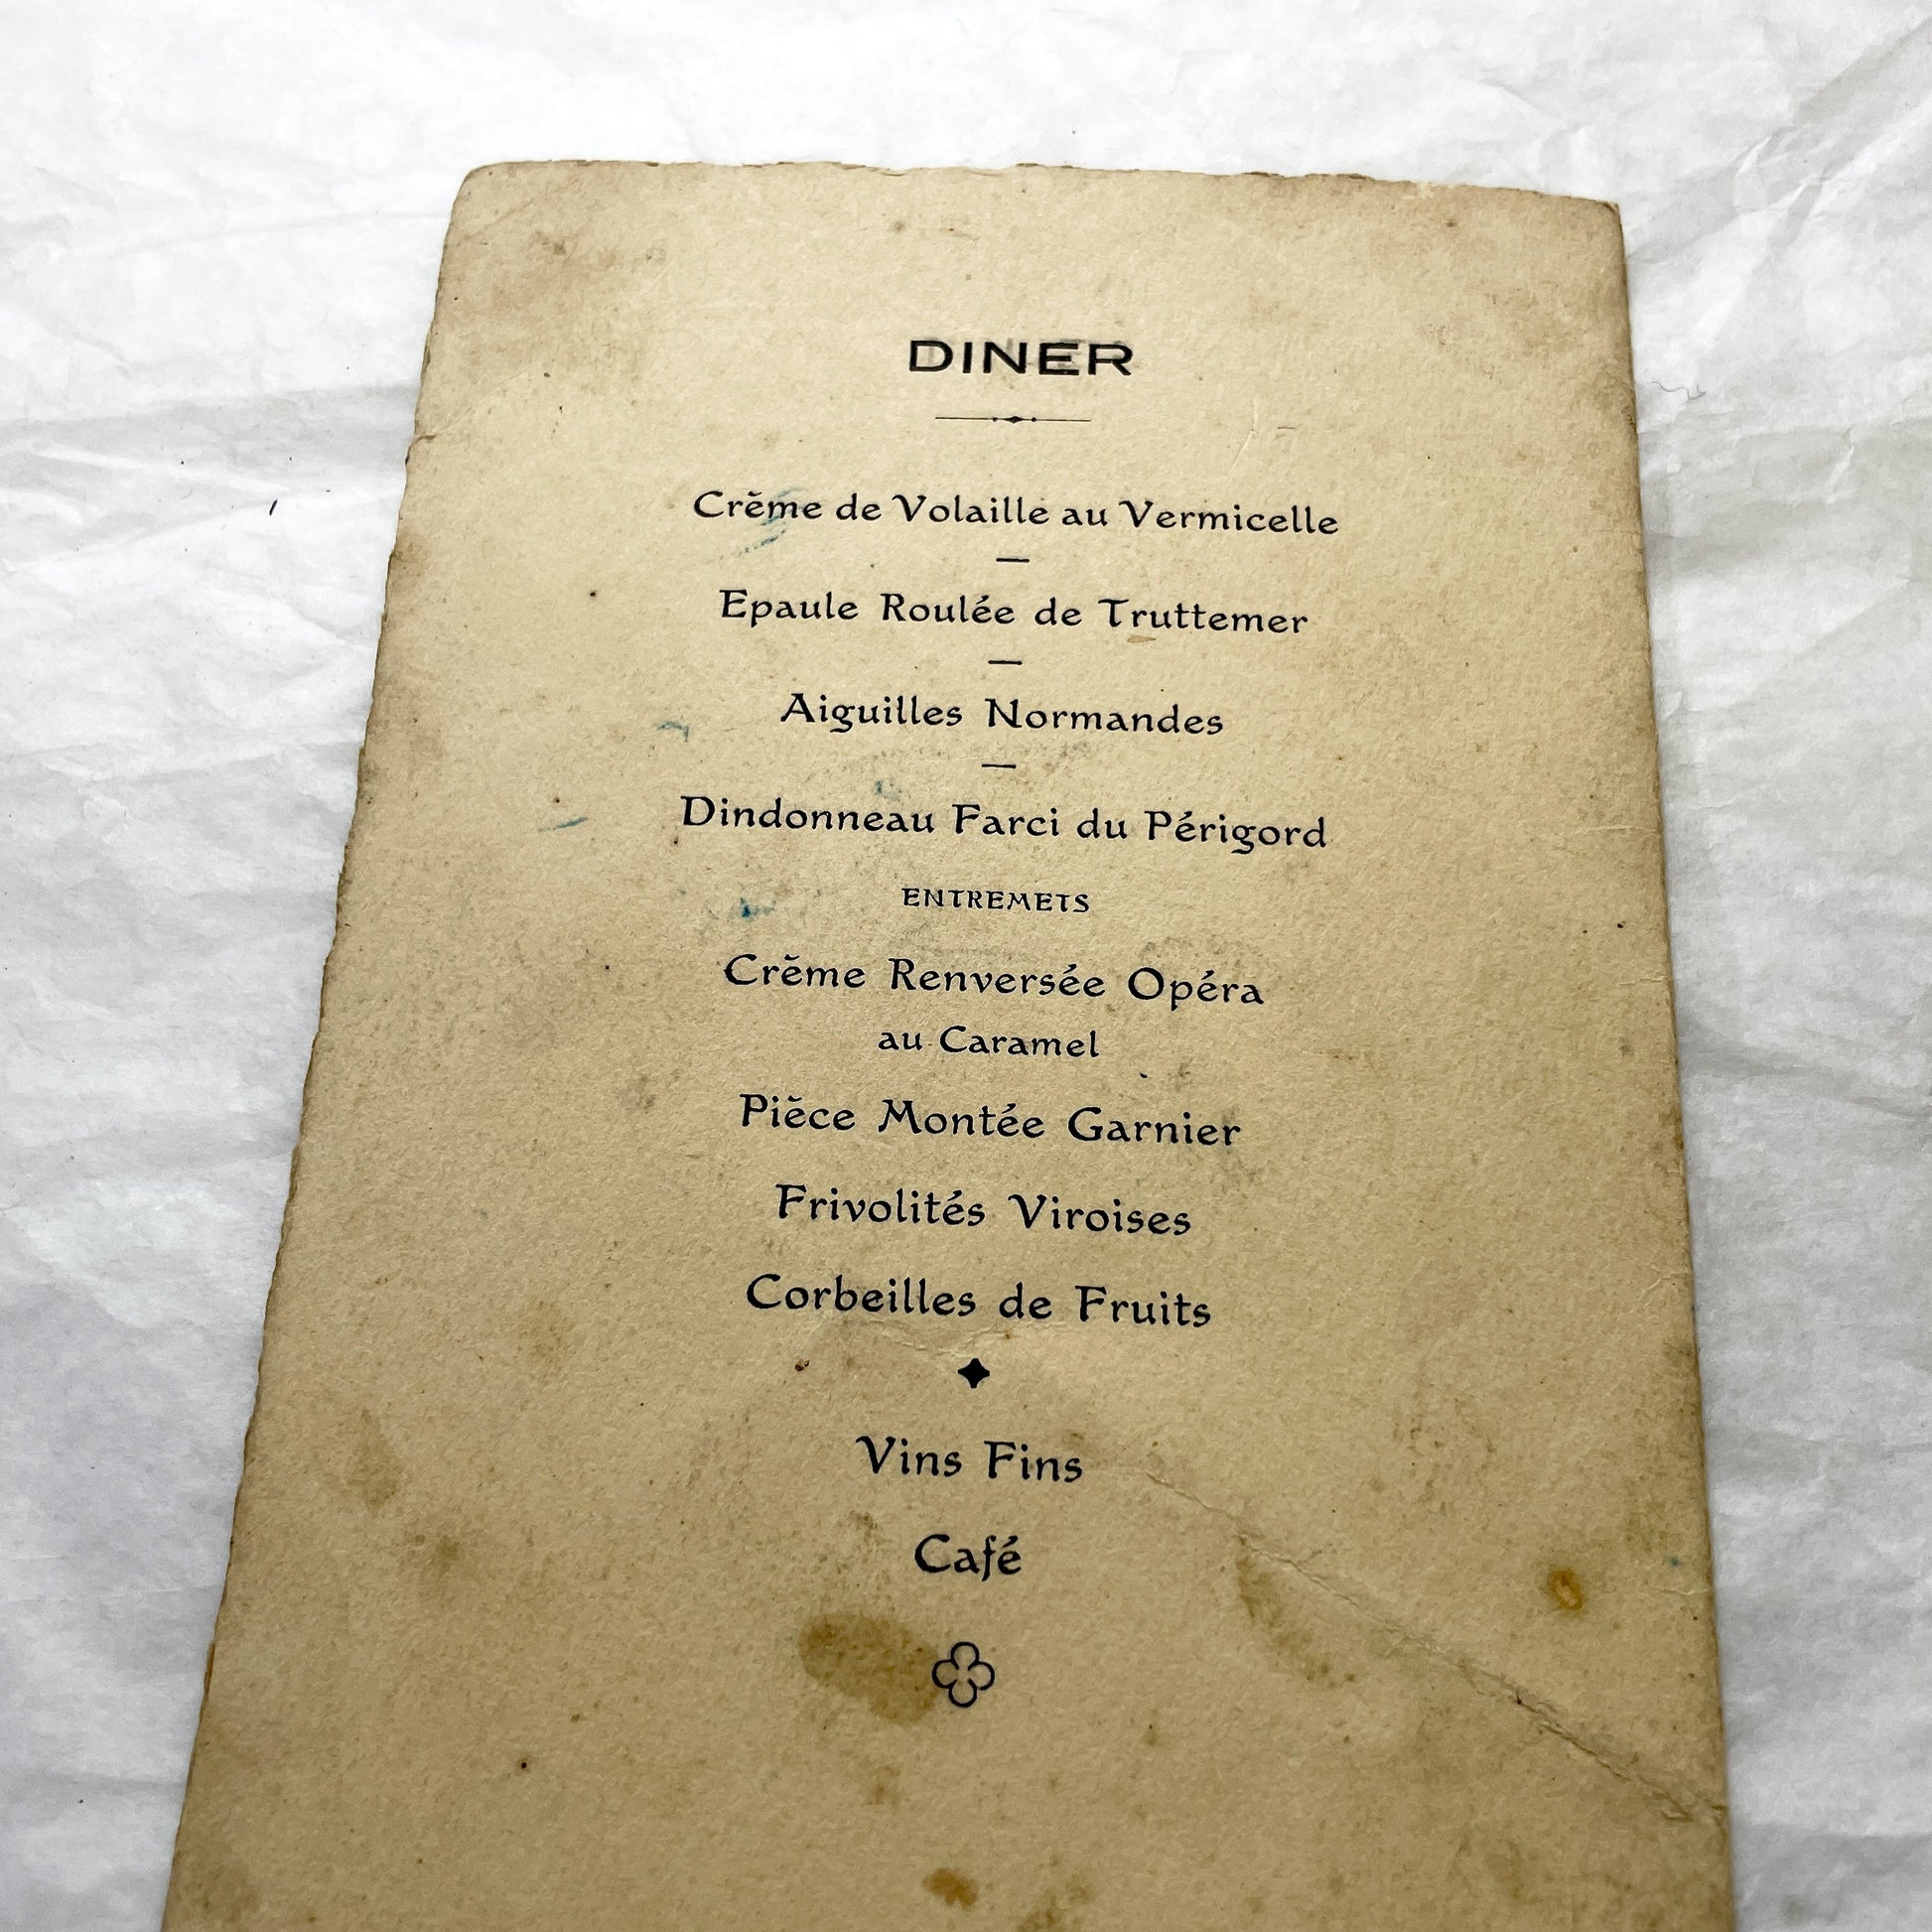 DINER
Crème de Volaille au Vermicelle
Epaule Roulée de Truttemer
Aiguilles Normandes
Dindonneau Farci du Périgord
ENTREMETS
Crème Renversée Opéra
au Caramel
Pièce Montée Garnier
Frivolités Viroises
Corbeilles de Fruits
Vins Fins
Café